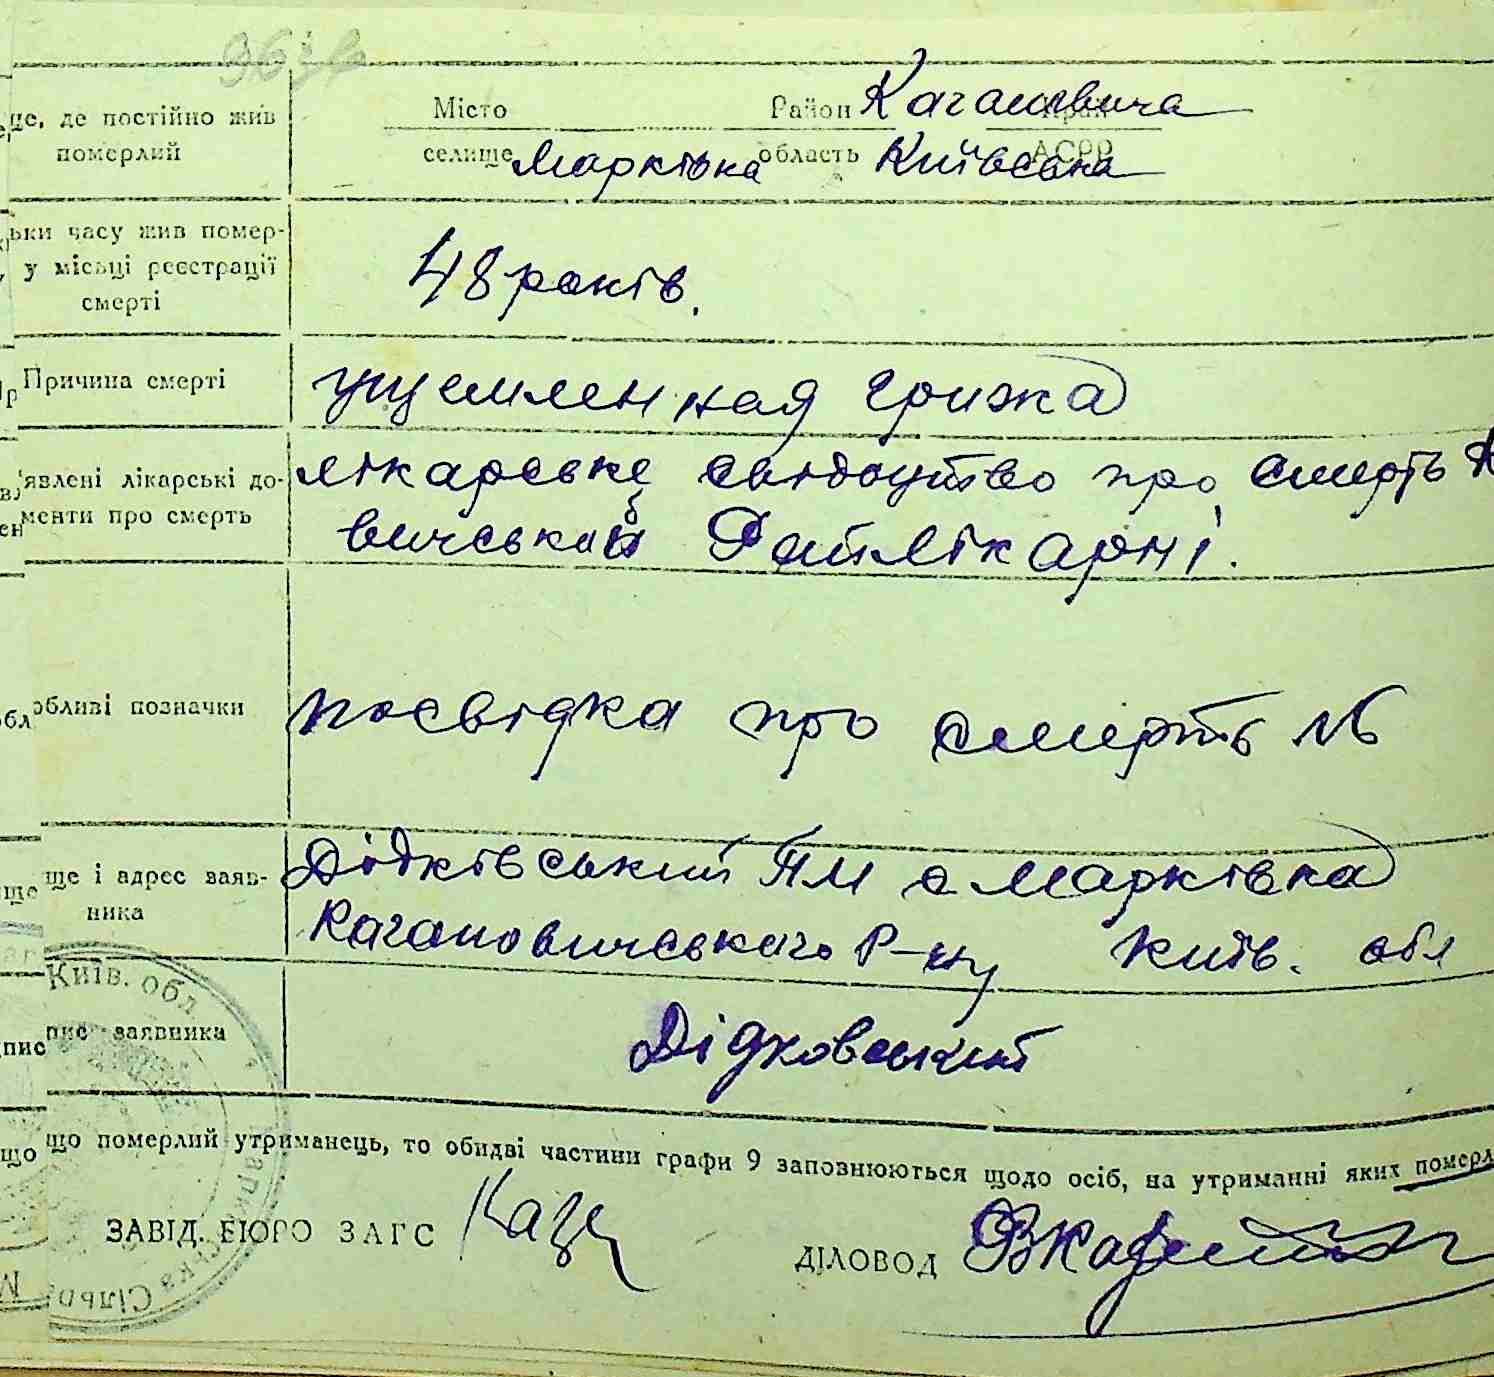 це, де постійно жив
померлий
Місто Район Кагановича Край
селище Марківка область Київська АСРР
ьки часу жив помер-
у місьці реєстрації
смерті
48 років.
Причина смерті
ущемленная грижа
'явлені лікарські до-
менти про смерть
лікарське свідоцтво про смерть
вичській Райлікарні.
обливі позначки
посвідка про смерть №
ще і адрес заяв-
ника
Дідківський ПМ с Марківка
Кагановичського Р-ну Київ. обл
пис заявника
Дідковський
Київ. обл
що померлий утриманець, то обидві частини графи 9 заповнюються щодо осіб, на утриманні яких померл
ЗАВІД. БЮРО ЗАГС
ДІЛОВОД